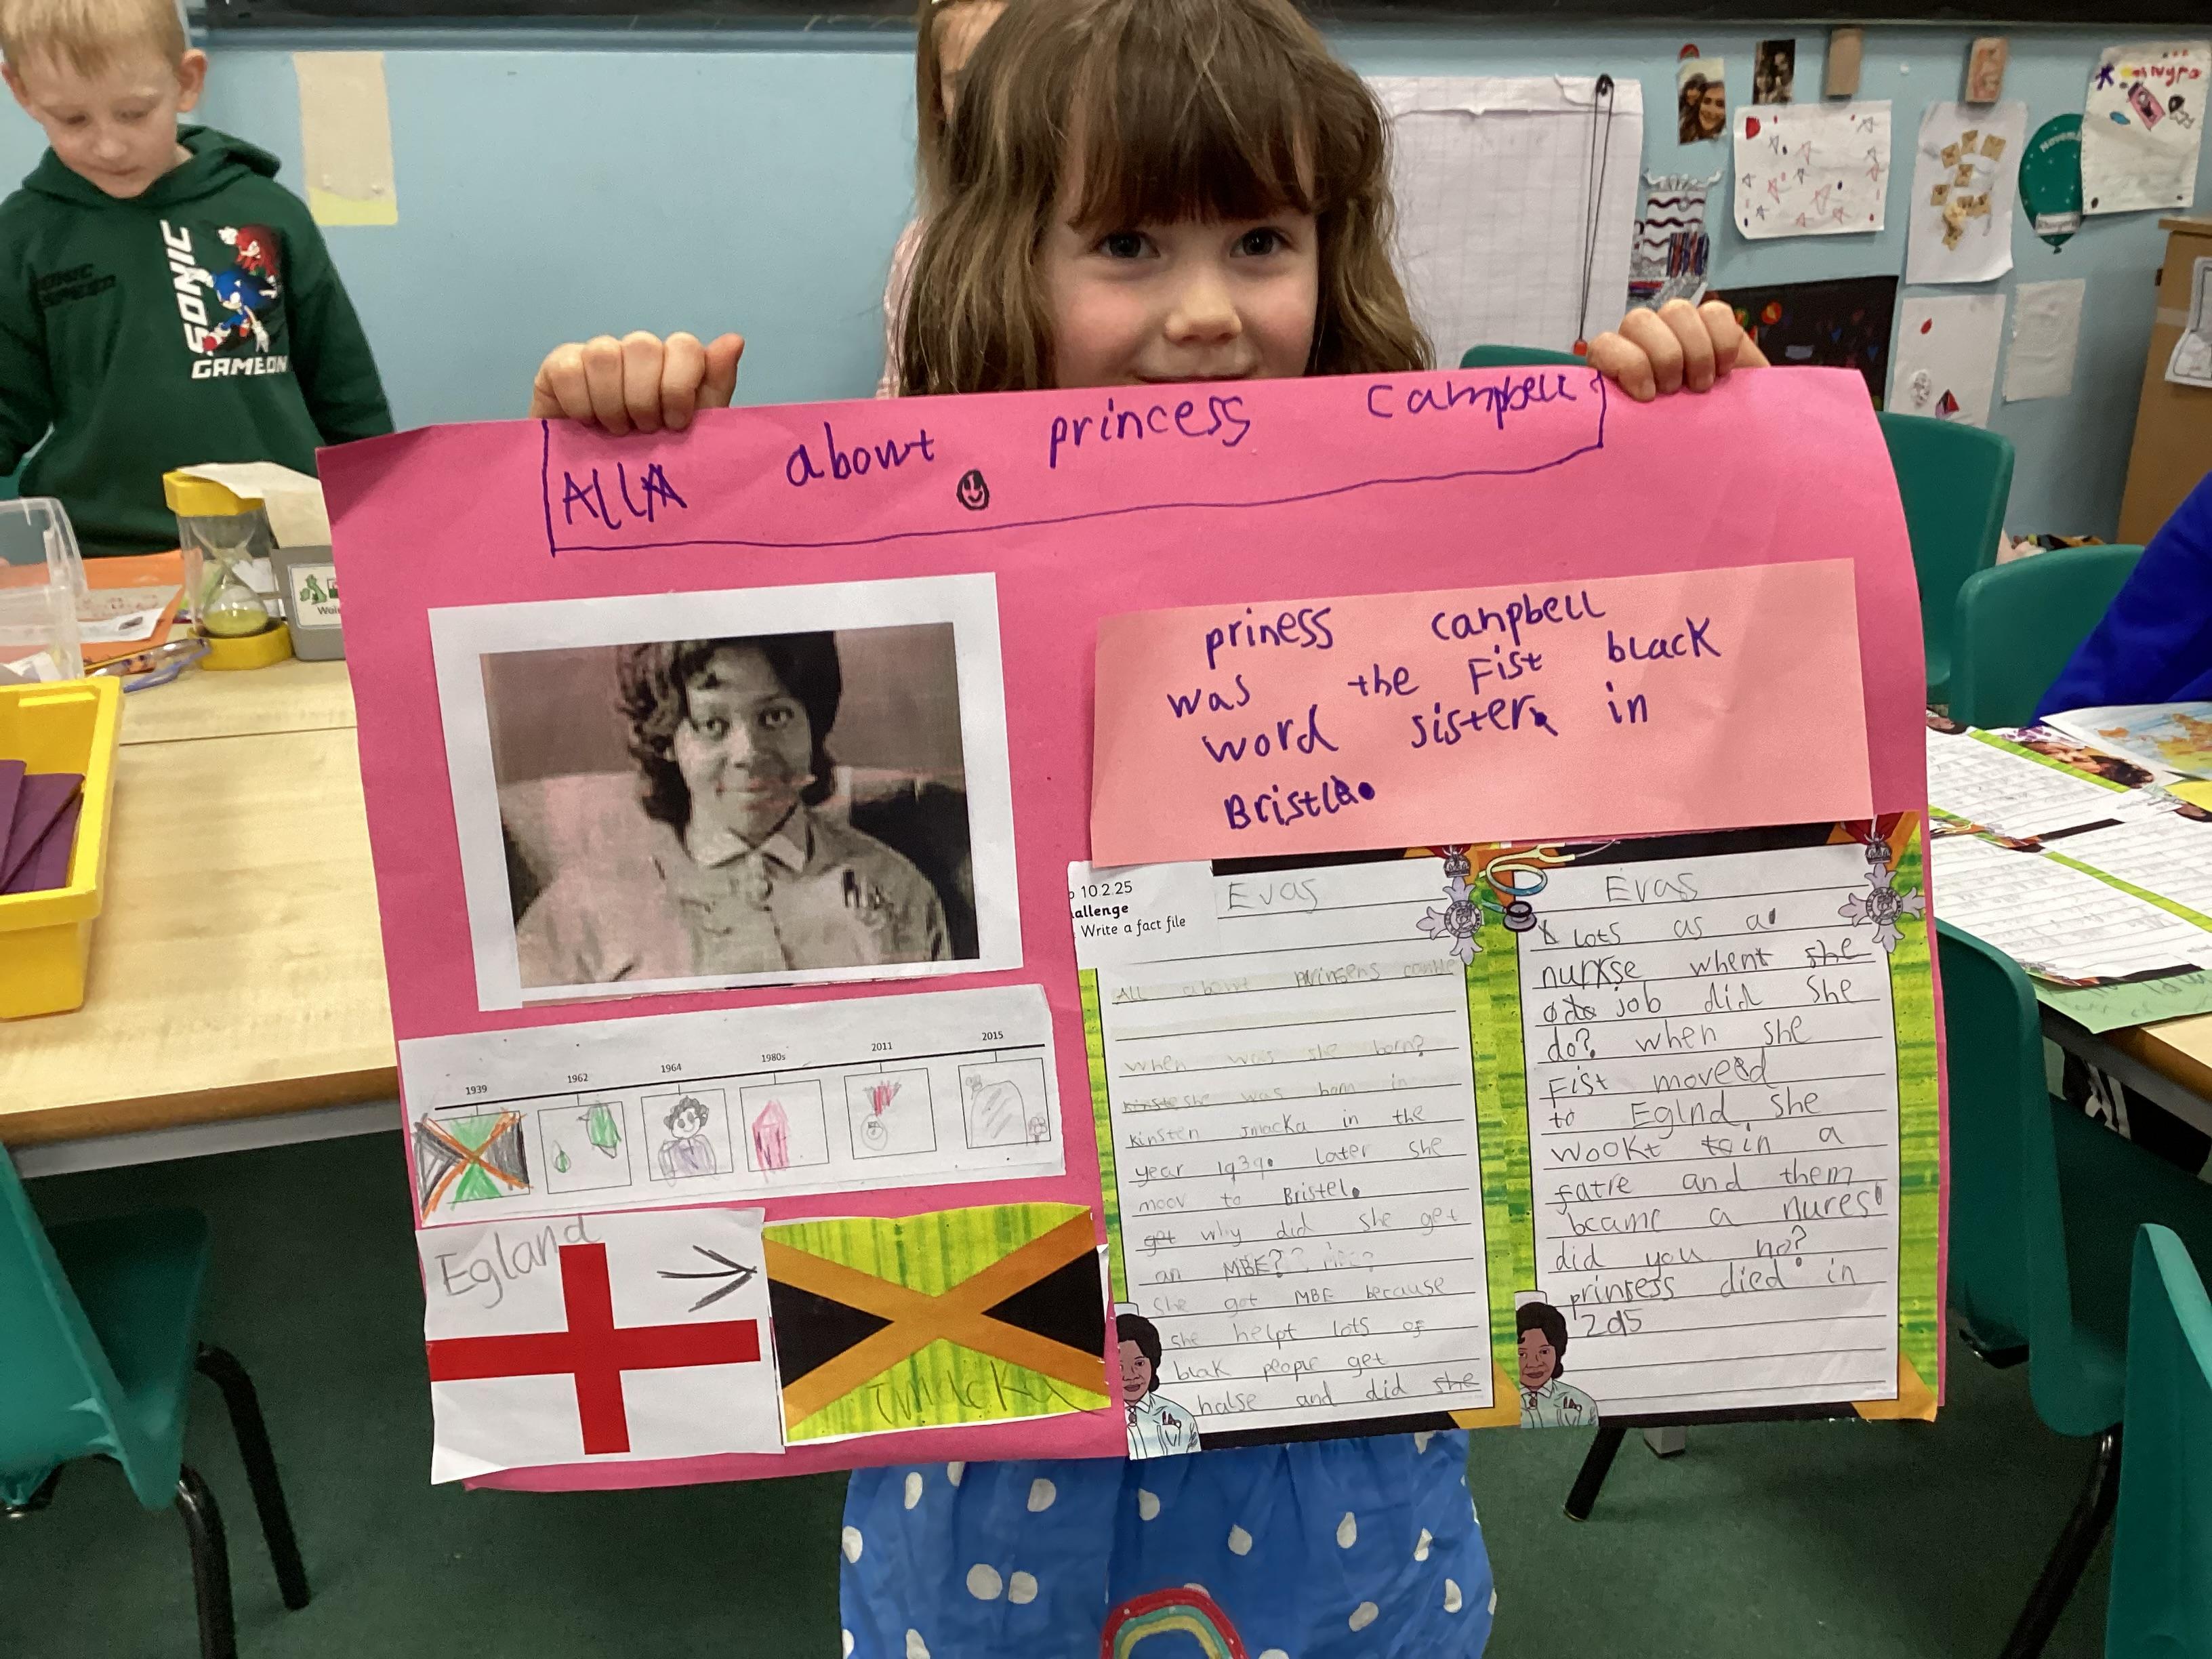 ALLA about princess campbell
priness canpbell
was the Fist black
word sister in
Bristla.
10.2.25
allenge
Write a fact file
Evas
All about prinsens
When was she born?
kinste she was born in
kinsten Jmacka in the
year 1939. later she
moov to Bristel.
get why did she get
an MBE?
She got MBE because
she helpt lots of
blak people get
halse and did she
Evas
Lots as a
nurse whent she
job did she
do? when she
Fist moved
to Eglnd she
wookt to in a
fatre and them
bcame a nures
did you no?
prinsess died in
2015
1939 1962 1964 1980s 2011 2015
Egland
Jmacka
SONIC
SONIC
SPEED
GAME ON